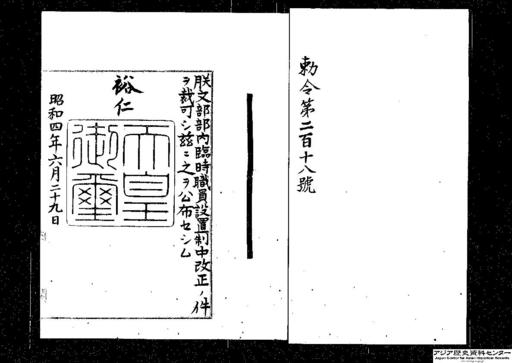 勅令第二百十八號
朕文部部内臨時職員設置制中改正ノ件
ヲ裁可シ玆ニ之ヲ公布セシム
裕仁
天皇
御璽
昭和四年六月二十九日
アジア歴史資料センター
Japan Center for Asian Historical Records